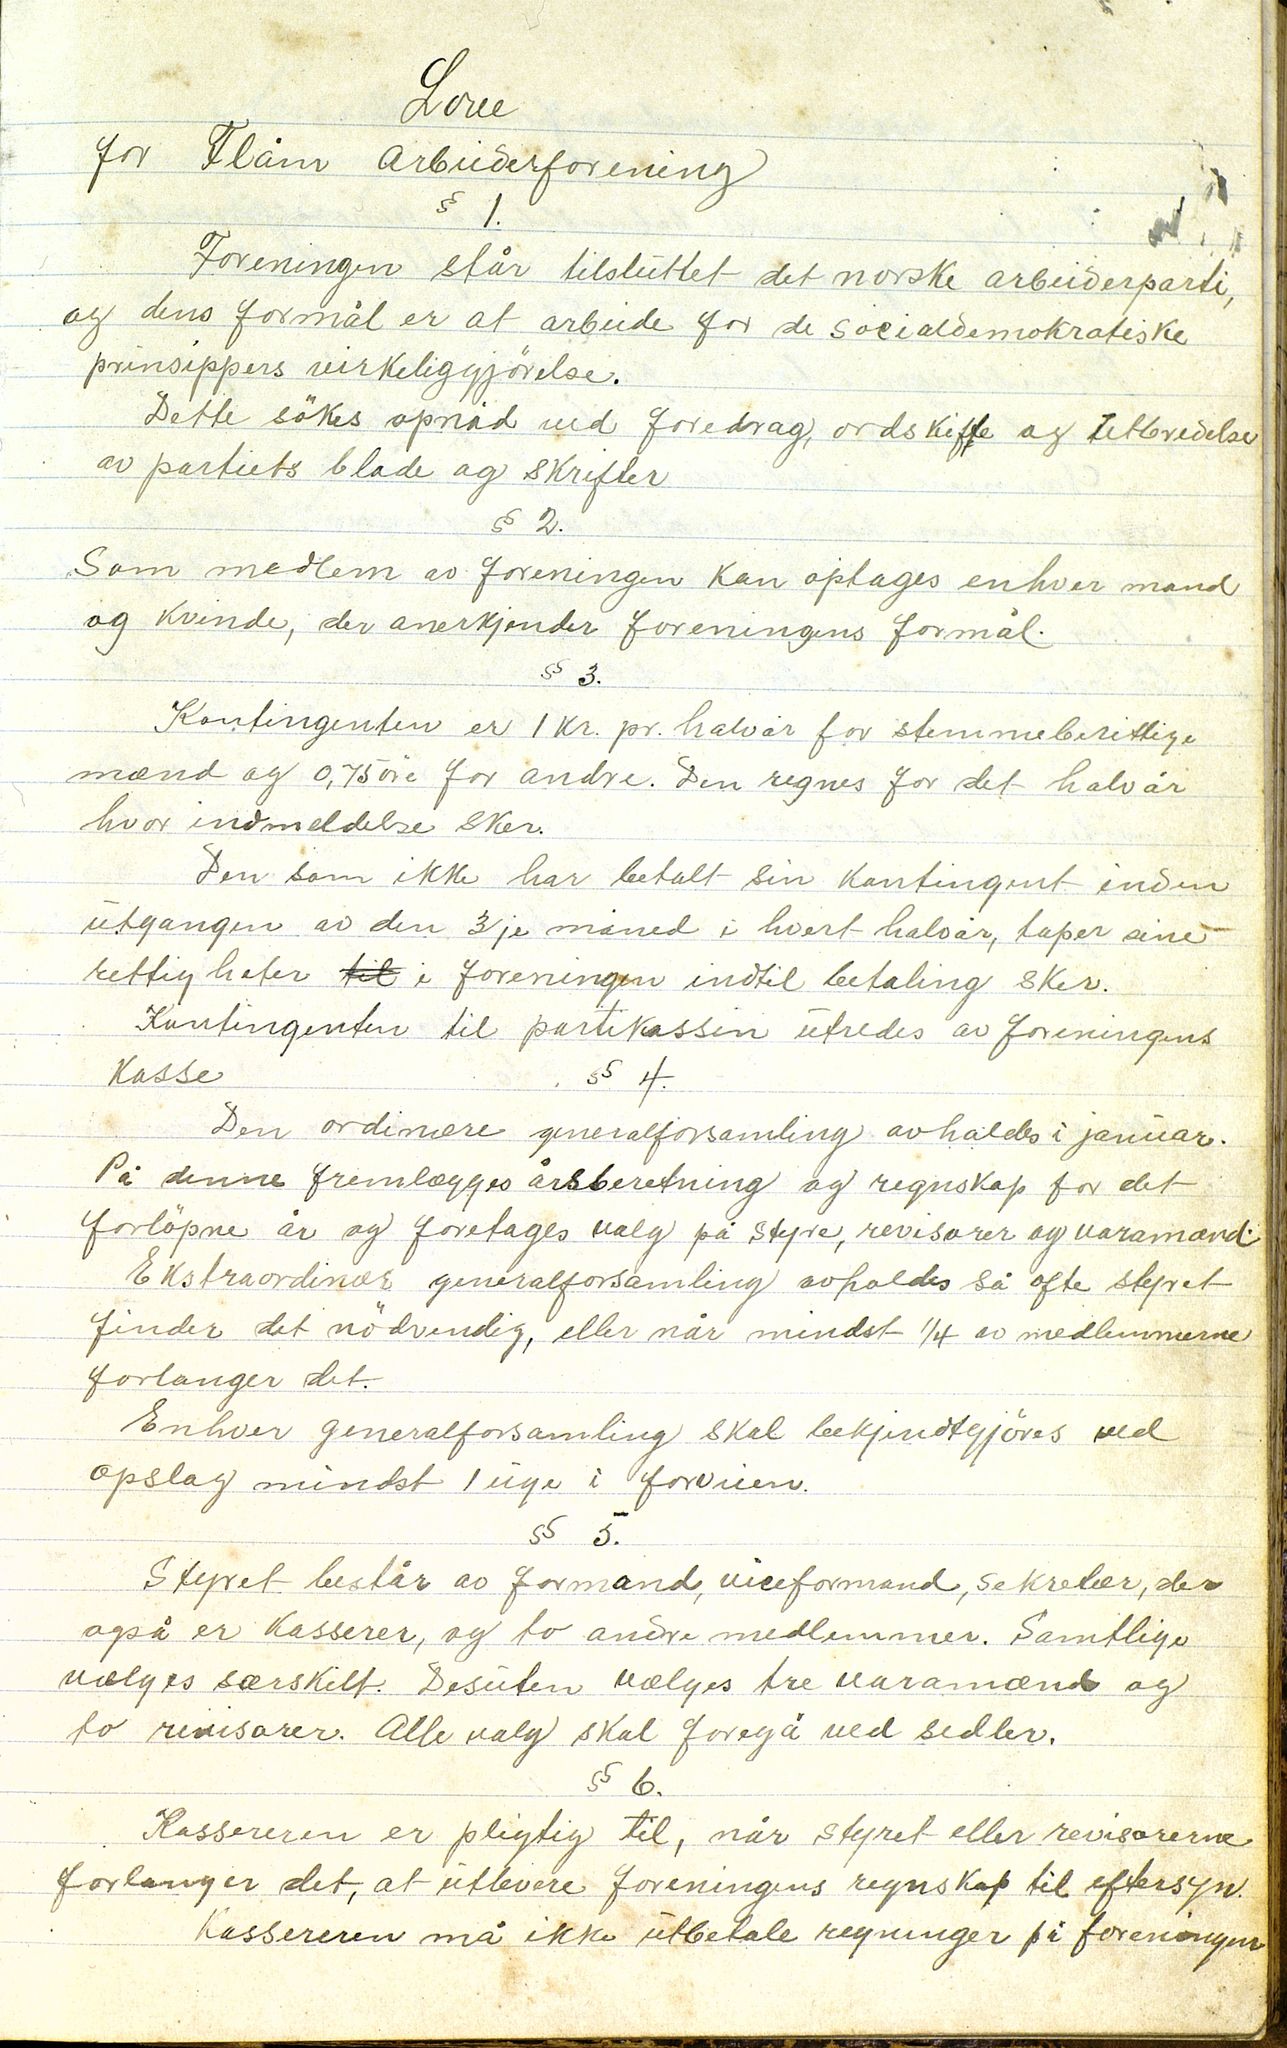 Love
for Flåm Arbeiderforening
§ 1.
Foreningen står tilsluttet det norske arbeiderparti,
og dens formål er at arbeide for de socialdemokratiske
prinsippers virkeliggjörelse.
Dette sökes opnåd ved foredrag, ordskifte og Utbredelse
av partiets blade og skrifter
§ 2.
Som medlem av foreningen kan optages enhver mand
og kvinde, der anerkjender foreningens formål.
§ 3.
Kontingenten er 1 kr. pr. halvår for stemmeberittige
mænd og 0,75 öre for andre. Den regnes for det halvår
hvor indmeldelse sker.
Den som ikke har betalt sin kontingent inden
utgangen av den 3je måned i hvert halvår, taper sine
rettigheter til i foreningen indtil betaling sker.
Kontingenten til partikassen utredes av foreningens
kasse
§ 4.
Den ordinære generalforsamling avholdes i januar.
På denne fremlægges årsberetning og regnskap for det
forlöpne år og foretages valg på styre, revisorer og varamænd.
Ekstraordinær generalforsamling avholdes så ofte styret
finder det nödvendig, eller når mindst 1/4 av medlemmerne
forlanger det.
Enhver generalforsamling skal bekjendtgjöres ved
opslag mindst 1 uge i forveien.
§ 5.
Styret består av formand, viceformand, sekretær, der
også er kasserer, og to andre medlemmer. Samtlige
vælges særskilt. Desuten vælges tre varamænd og
to revisorer. Alle valg skal foregå ved sedler.
§ 6.
Kassereren er pligtig til, når styret eller revisorerne
forlanger det, at utlevere foreningens regnskap til eftersyn.
Kassereren må ikke utbetale regninger på foreningens